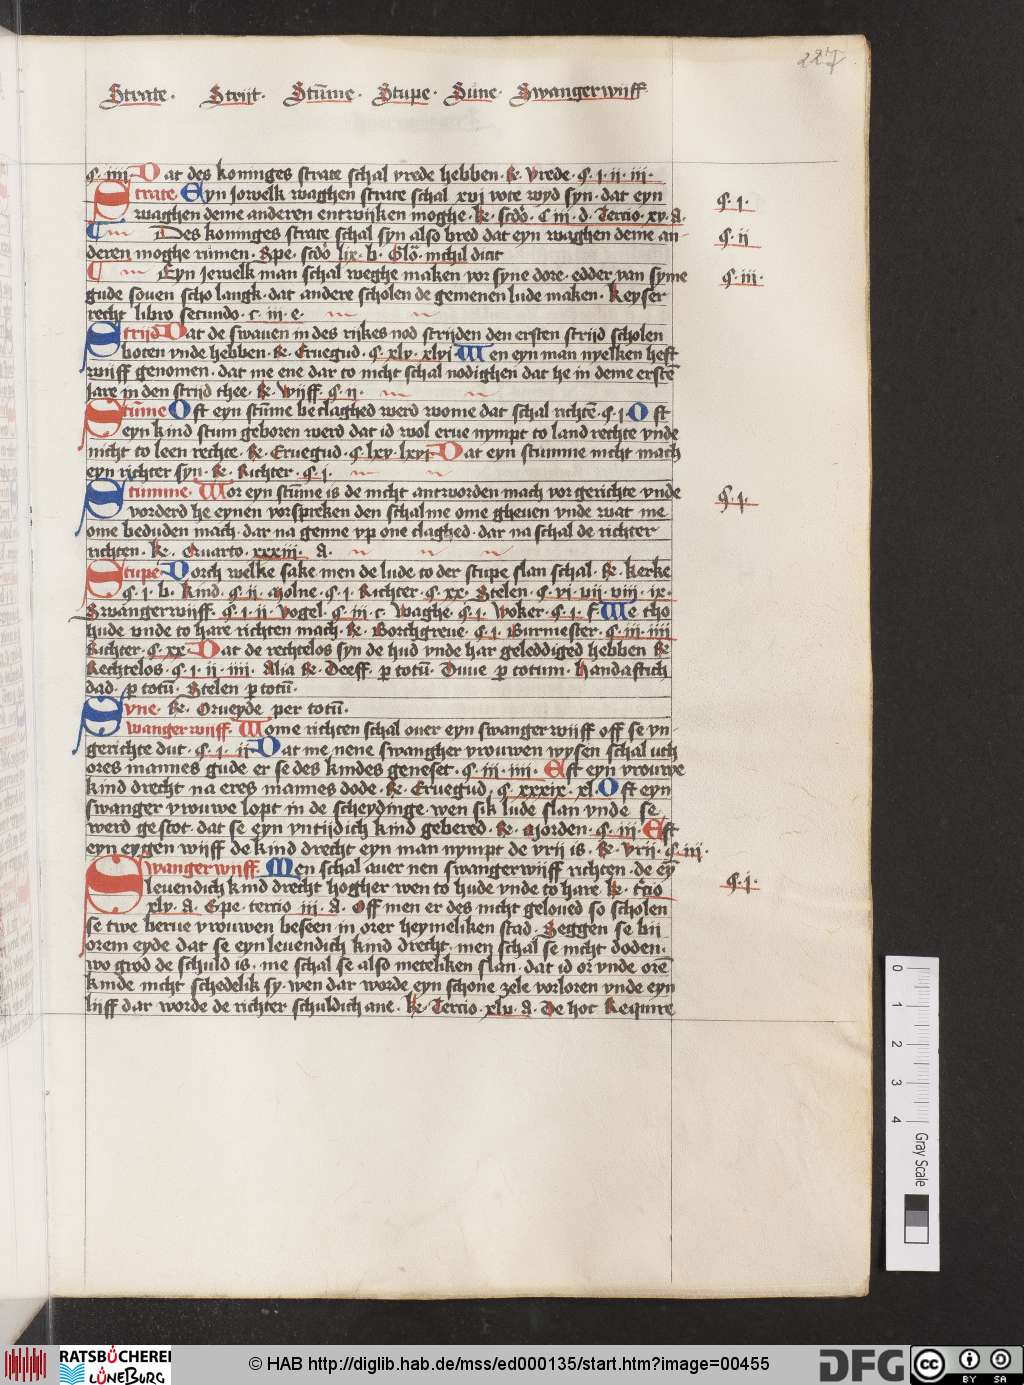 227
Strate · Strijt · Stūme · Stupe · Sune · Swangerwijff ·
ꝯ. iiii. Dat des konniges strate schal vrede hebben · Re · vrede · ꝯ · i · ii · iii ·
Strate Eyn jowelk waghen strate schal xvi vote wyd syn · dat eyn
waghen deme anderen entwijken moghe · Re · scdo · C iii · d · Tercio · xv · A ·
ꝯ · i ·
Des konniges strate schal syn also bred dat eyn waghen deme an-
ꝯ · ii
deren moghe rumen · Spe · scdo lix · b · Glo · nichil dicit
Eyn jewelk man schal weghe maken vor syne dore · edder van syme
ꝯ · iii ·
gude souen scho langk · dat andere scholen de gemenen lude maken · Keyser
recht libro secundo · c · iii · e ·
Strijd Dat de swauen in des rijkes nod strijden den ersten strijd scholen
boten vnde hebben · Re · Eruegud · ꝯ · xlv · xlvi Wen eyn man nyelken heft
wijff genomen · dat me ene dar to nicht schal nodighen dat he in deme erstē
jare in den strijd thee · Re · Wijff · ꝯ · ij ·
Stūme Oft eyn stūme beclaghed werd wome dat schal richtē · ꝯ · i · Oft
eyn kind stum geboren werd dat id wol erue nympt to landrechte vnde
nicht to leenrechte · Re · Eruegud · ꝯ · lxv · lxvi Dat eyn stumme nicht mach
eyn richter syn · Re · Richter · ꝯ · i ·
Stumme · Wor eyn stūme is de nicht antworden mach vor gerichte vnde
ꝯ · i ·
vorderd he eynen vorspreken den schal me ome gheuen vnde wat me
ome beduden mach · dar na genne vp one claghed · dar na schal de richter
richten · Re · Quarto · xxxiii · A ·
Stupe Dorch welke sake men de lude to der stupe slan schal · Re · Kerke
ꝯ · i · b · Kind · ꝯ · ii · Molne · ꝯ · i · Richter · ꝯ · xx · Stelen · ꝯ · vi · vii · viii · ix ·
Swangerwijff · ꝯ · i · ii · Vogel · ꝯ · iii · c · Waghe · ꝯ · i · Woker · ꝯ · i · f We tho
hude vnde to hare richten mach · Re · Borchgreue · ꝯ · i · Burmester · ꝯ · iii · iiii
Richter · ꝯ · xx · Dat de rechtelos syn de hud vnde har geleddiged hebben Re
Rechtelos · ꝯ · i · ii · iiii · Alia Re · Deeff · p totū · Duue p totum · Handaftich
dad · p totū · Stelen p totū ·
Syne · Re · Orueyde per totū ·
Swangerwijff · Wome richten schal ouer eyn swangerwijff off se yn-
gerichte dut · ꝯ · i · ii Dat me nene swangher vrouwen wysen schal uth
ores mannes gude er se des kindes geneset · ꝯ · iii · iiii · Eft eyn vrouwe
kind drecht na eres mannes dode · Re · Eruegud · ꝯ · xxxix · xl · Oft eyn
swanger vrouwe lopt in de scheydinge · wen sik lude slan vnde se
werd gestot · dat se eyn vntijdich kind gebered · Re · Morden · ꝯ · iii · Eft
eyn eygen wijff de kind drecht eyn man nympt de vrij is · Re · Vrij · ꝯ · iij ·
Swangerwijff · Men schal auer nen swangerwijff richten · de eȳ
ꝯ · i ·
leuendich kind drecht hogher wen to hude vnde to hare · Re · tcio
xlv · A · Spe · tercio iii · A · Off men er des nicht geloued so scholen
se twe berue vrouwen beseen in orer heymeliken stad · Seggen se bij
orem eyde dat se eyn leuendich kind drecht · men schal se nicht doden ·
wo grod de schuld is · me schal se also meteliken slan · dat id or vnde orē
kinde nicht schedelik sy · wen dar worde eyn schone zele vorloren vnde eyn
lijff dar worde de richter schuldich ane · Re · Tercio · xlv · A · De hoc Require
0 1 2 3 4 Gray Scale
RATSBÜCHEREI LÜNEBURG
© HAB http://diglib.hab.de/mss/ed000135/start.htm?image=00455
DFG
cc BY SA